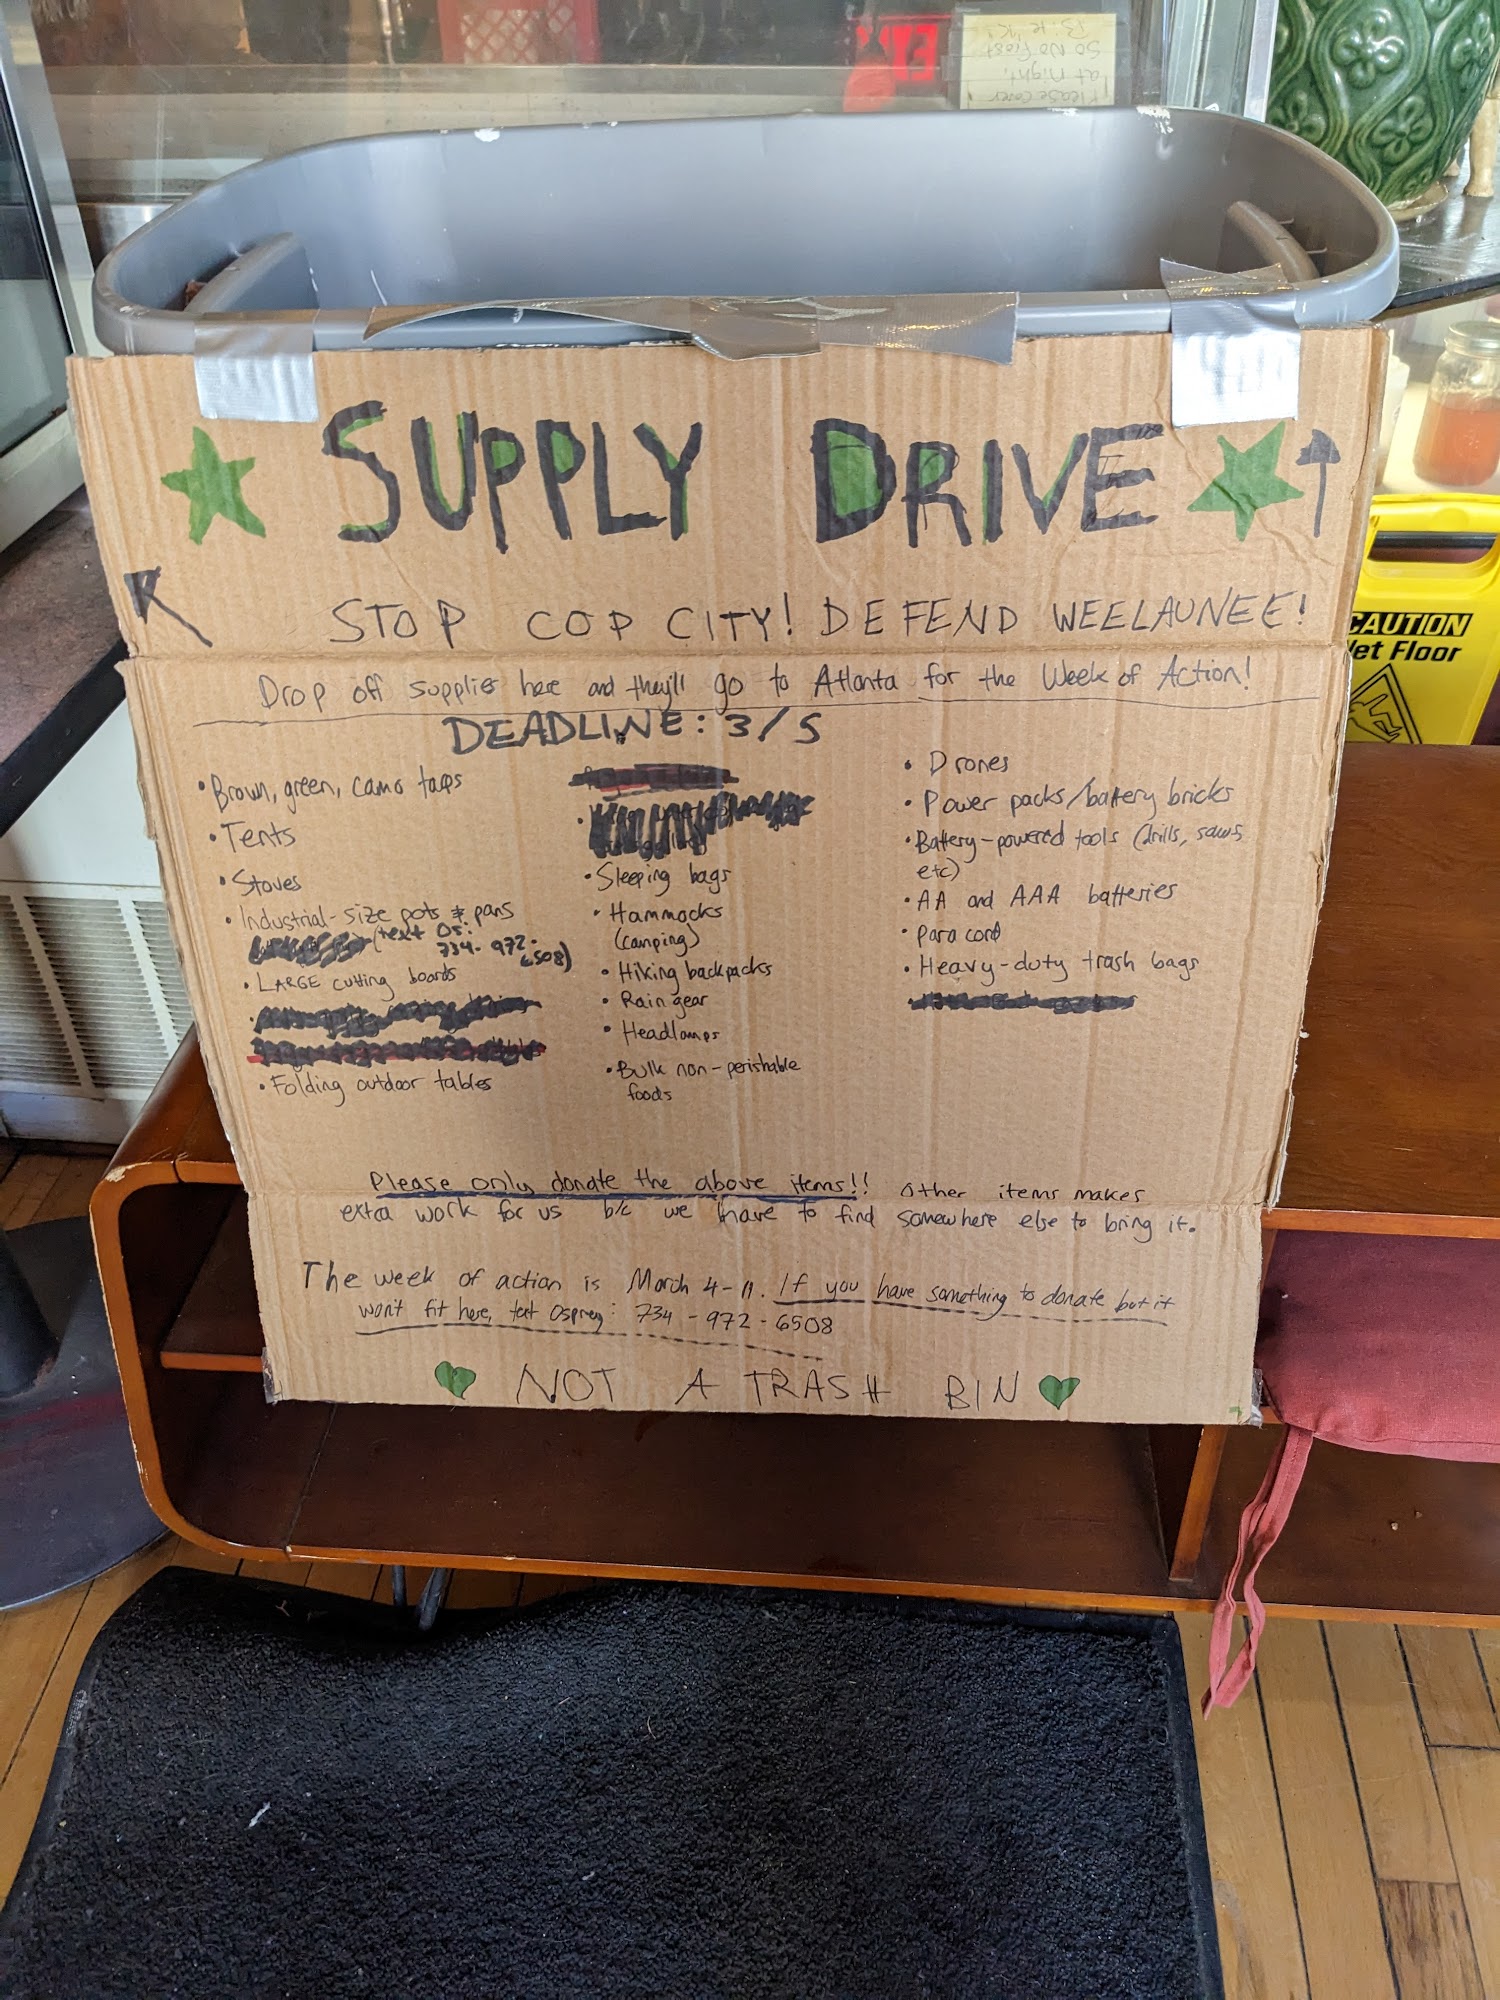 Please cover
at night,
So No Frost
SUPPLY DRIVE
STOP COP CITY! DEFEND WEELAUNEE!
Drop off supplies here and they'll go to Atlanta for the Week of Action!
DEADLINE: 3/5
• Brown, green, camo taps
• Tents
• Stoves
• Industrial-size pots & pans
(text Os:
734-972-
6508)
• LARGE cutting boards
• Folding outdoor tables
• Sleeping bags
• Hammocks
(camping)
• Hiking backpacks
• Rain gear
• Headlamps
• Bulk non-perishable
foods
• Drones
• Power packs/battery bricks
• Battery-powered tools (drills, saws,
etc)
• AA and AAA batteries
• Para cord
• Heavy-duty trash bags
Please only donate the above items!! Other items makes
extra work for us b/c we have to find somewhere else to bring it.
The week of action is March 4-11. If you have something to donate but it
won't fit here, text Osprey: 734-972-6508
NOT A TRASH BIN
CAUTION
Wet Floor